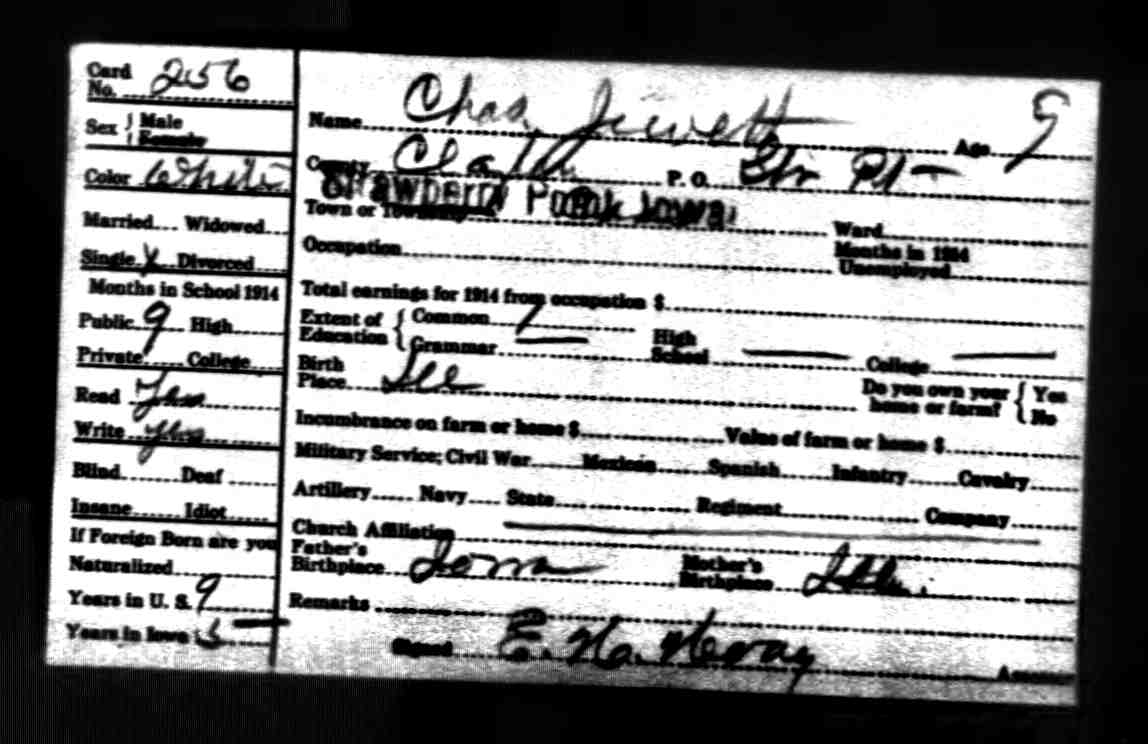 Card No. 256
Sex } Male Female
Color White
Married Widowed
Single X Divorced
Months in School 1914
Public 9 High
Private College
Read Yes
Write Yes
Blind Deaf
Insane Idiot
If Foreign Born are you
Naturalized
Years in U. S. 9
Years in Iowa 5
Name Chas Jewett Age 9
County Clayton P. O. Str Pt
Strawberry Point Iowa
Town or Township Ward
Occupation Months in 1914 Unemployed
Total earnings for 1914 from occupation $
Extent of Education { Common 7 Grammar — High School — College —
Birth Place Ill Do you own your home or farm? { Yes No
Incumbrance on farm or home $ Value of farm or home $
Military Service; Civil War Mexican Spanish Infantry Cavalry
Artillery Navy State Regiment Company
Church Affiliation
Father's Birthplace Iowa Mother's Birthplace Ill.
Remarks
Signed E. H.